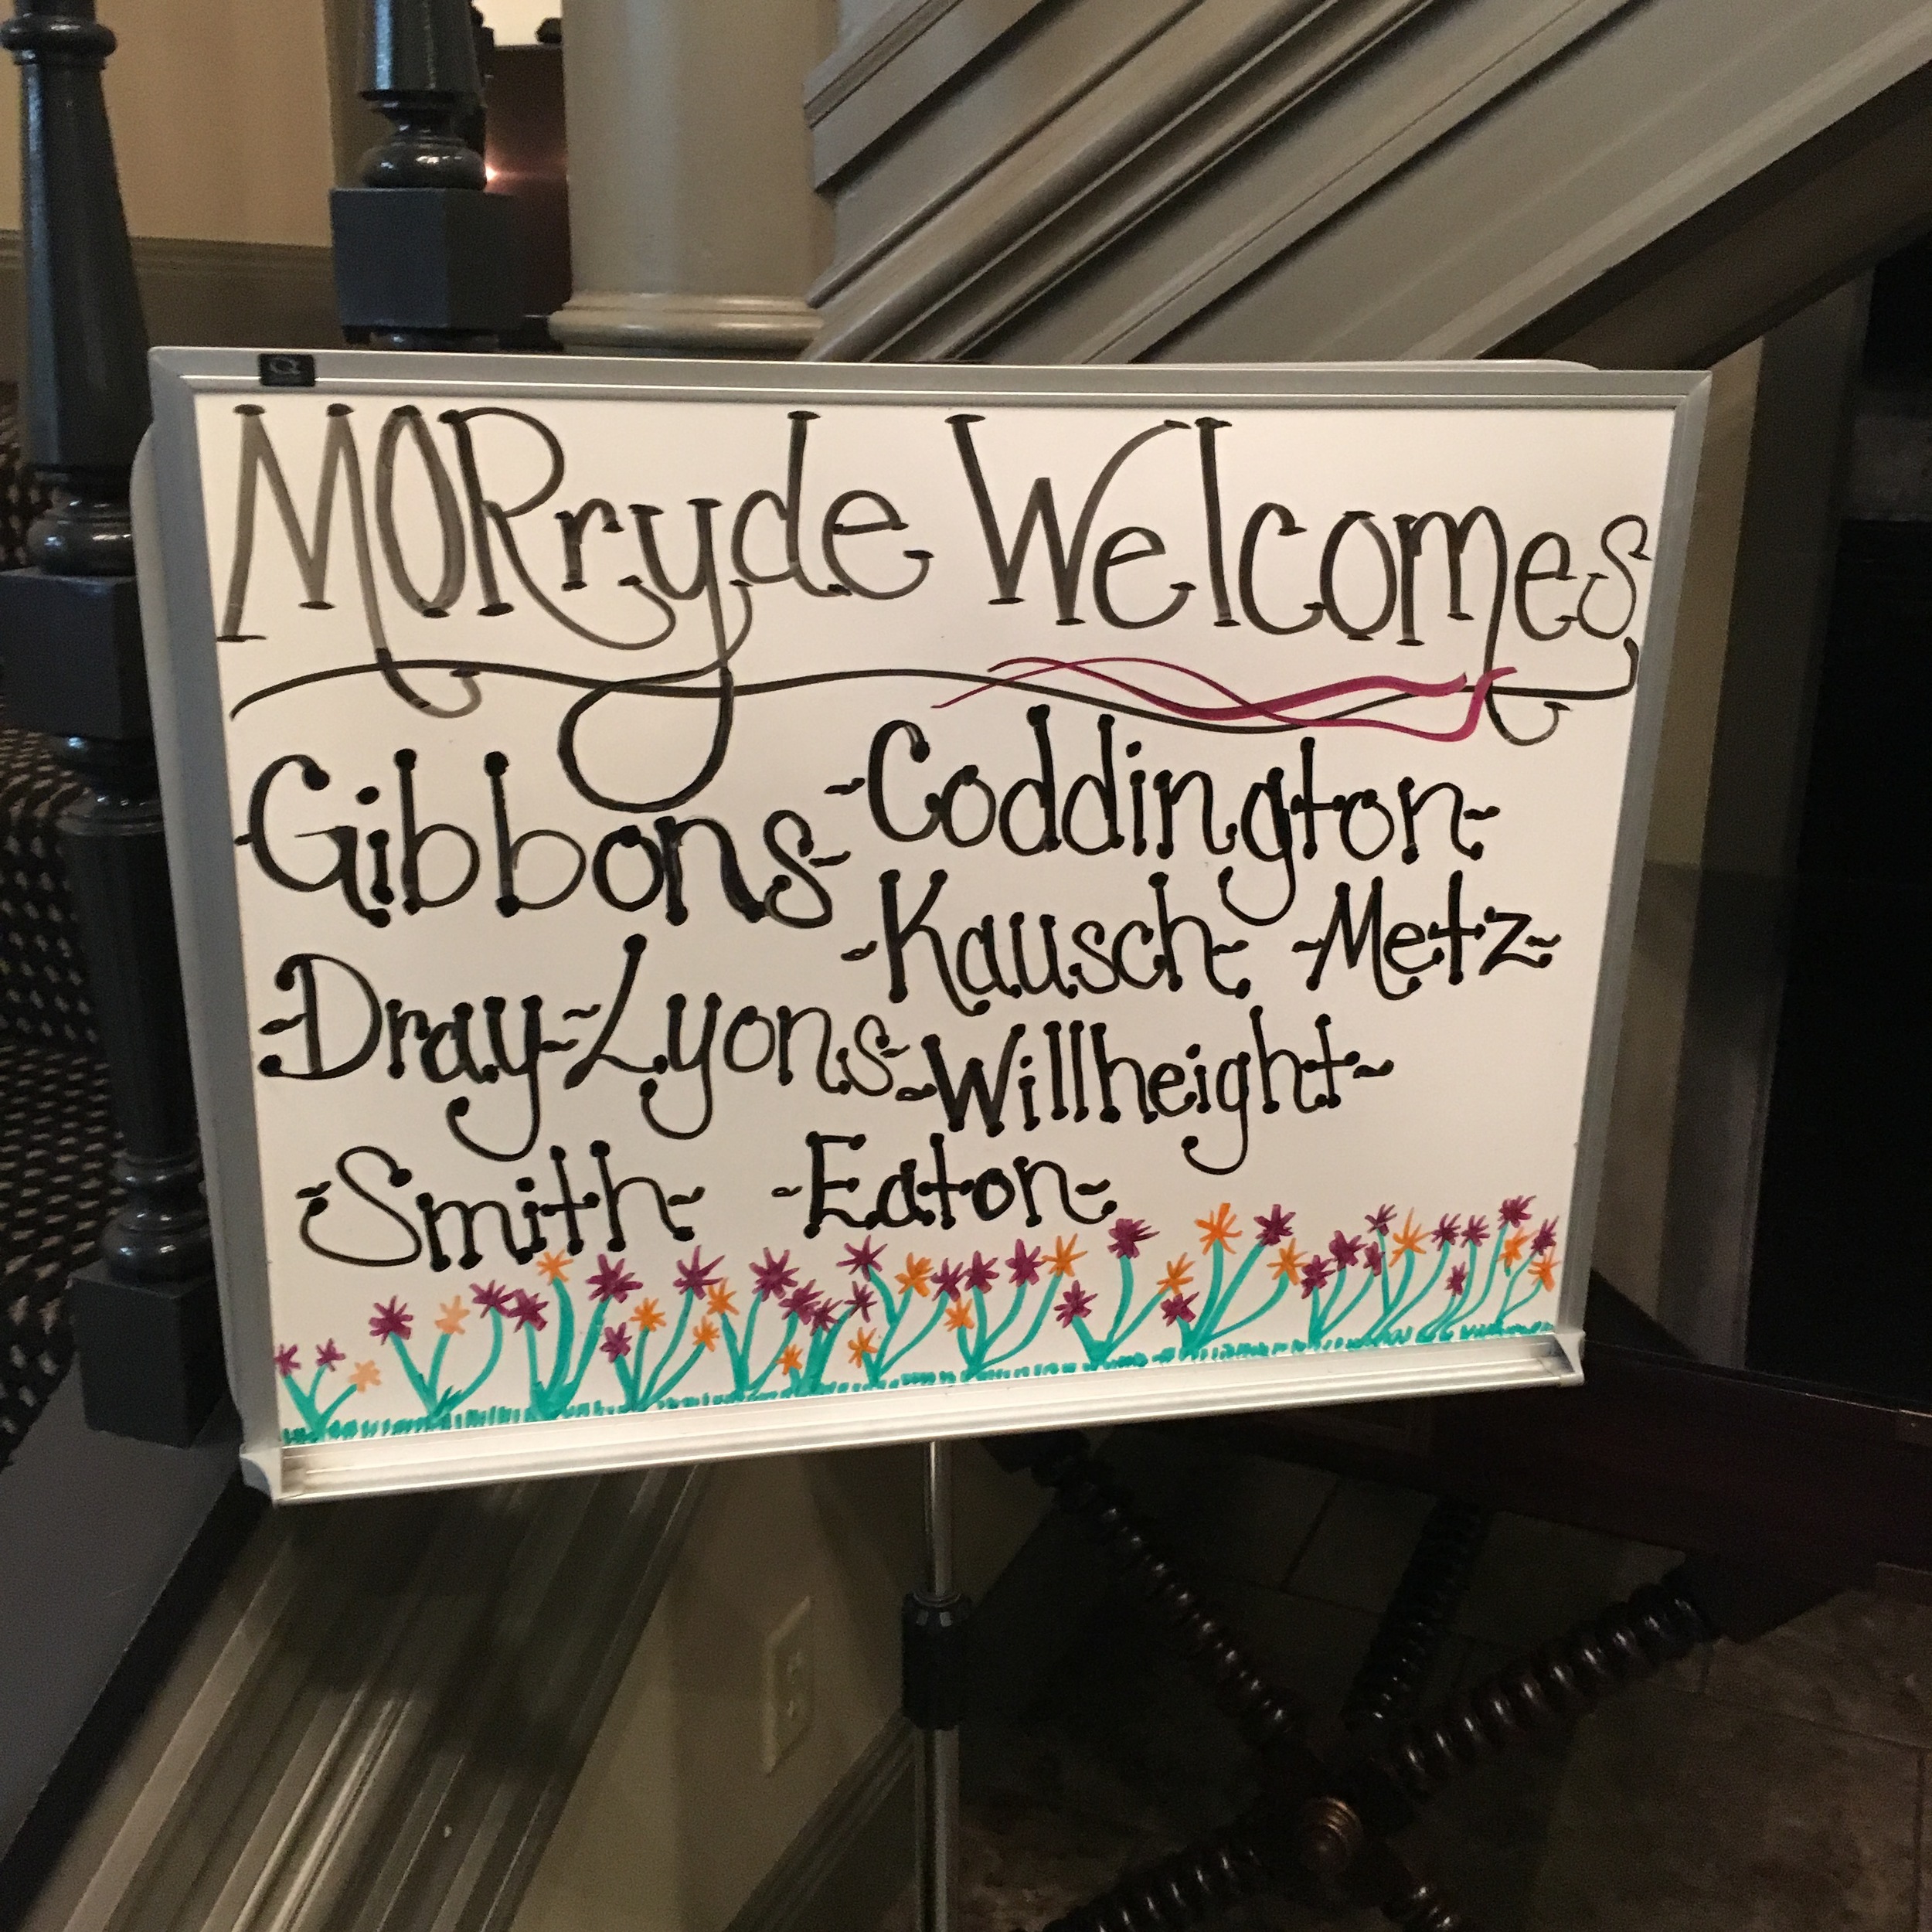 MORryde Welcomes
Gibbons~ ~Coddington~
~Kausch~ ~Metz~
~Dray~ ~Lyons~ ~Willheight~
~Smith~ ~Eaton~